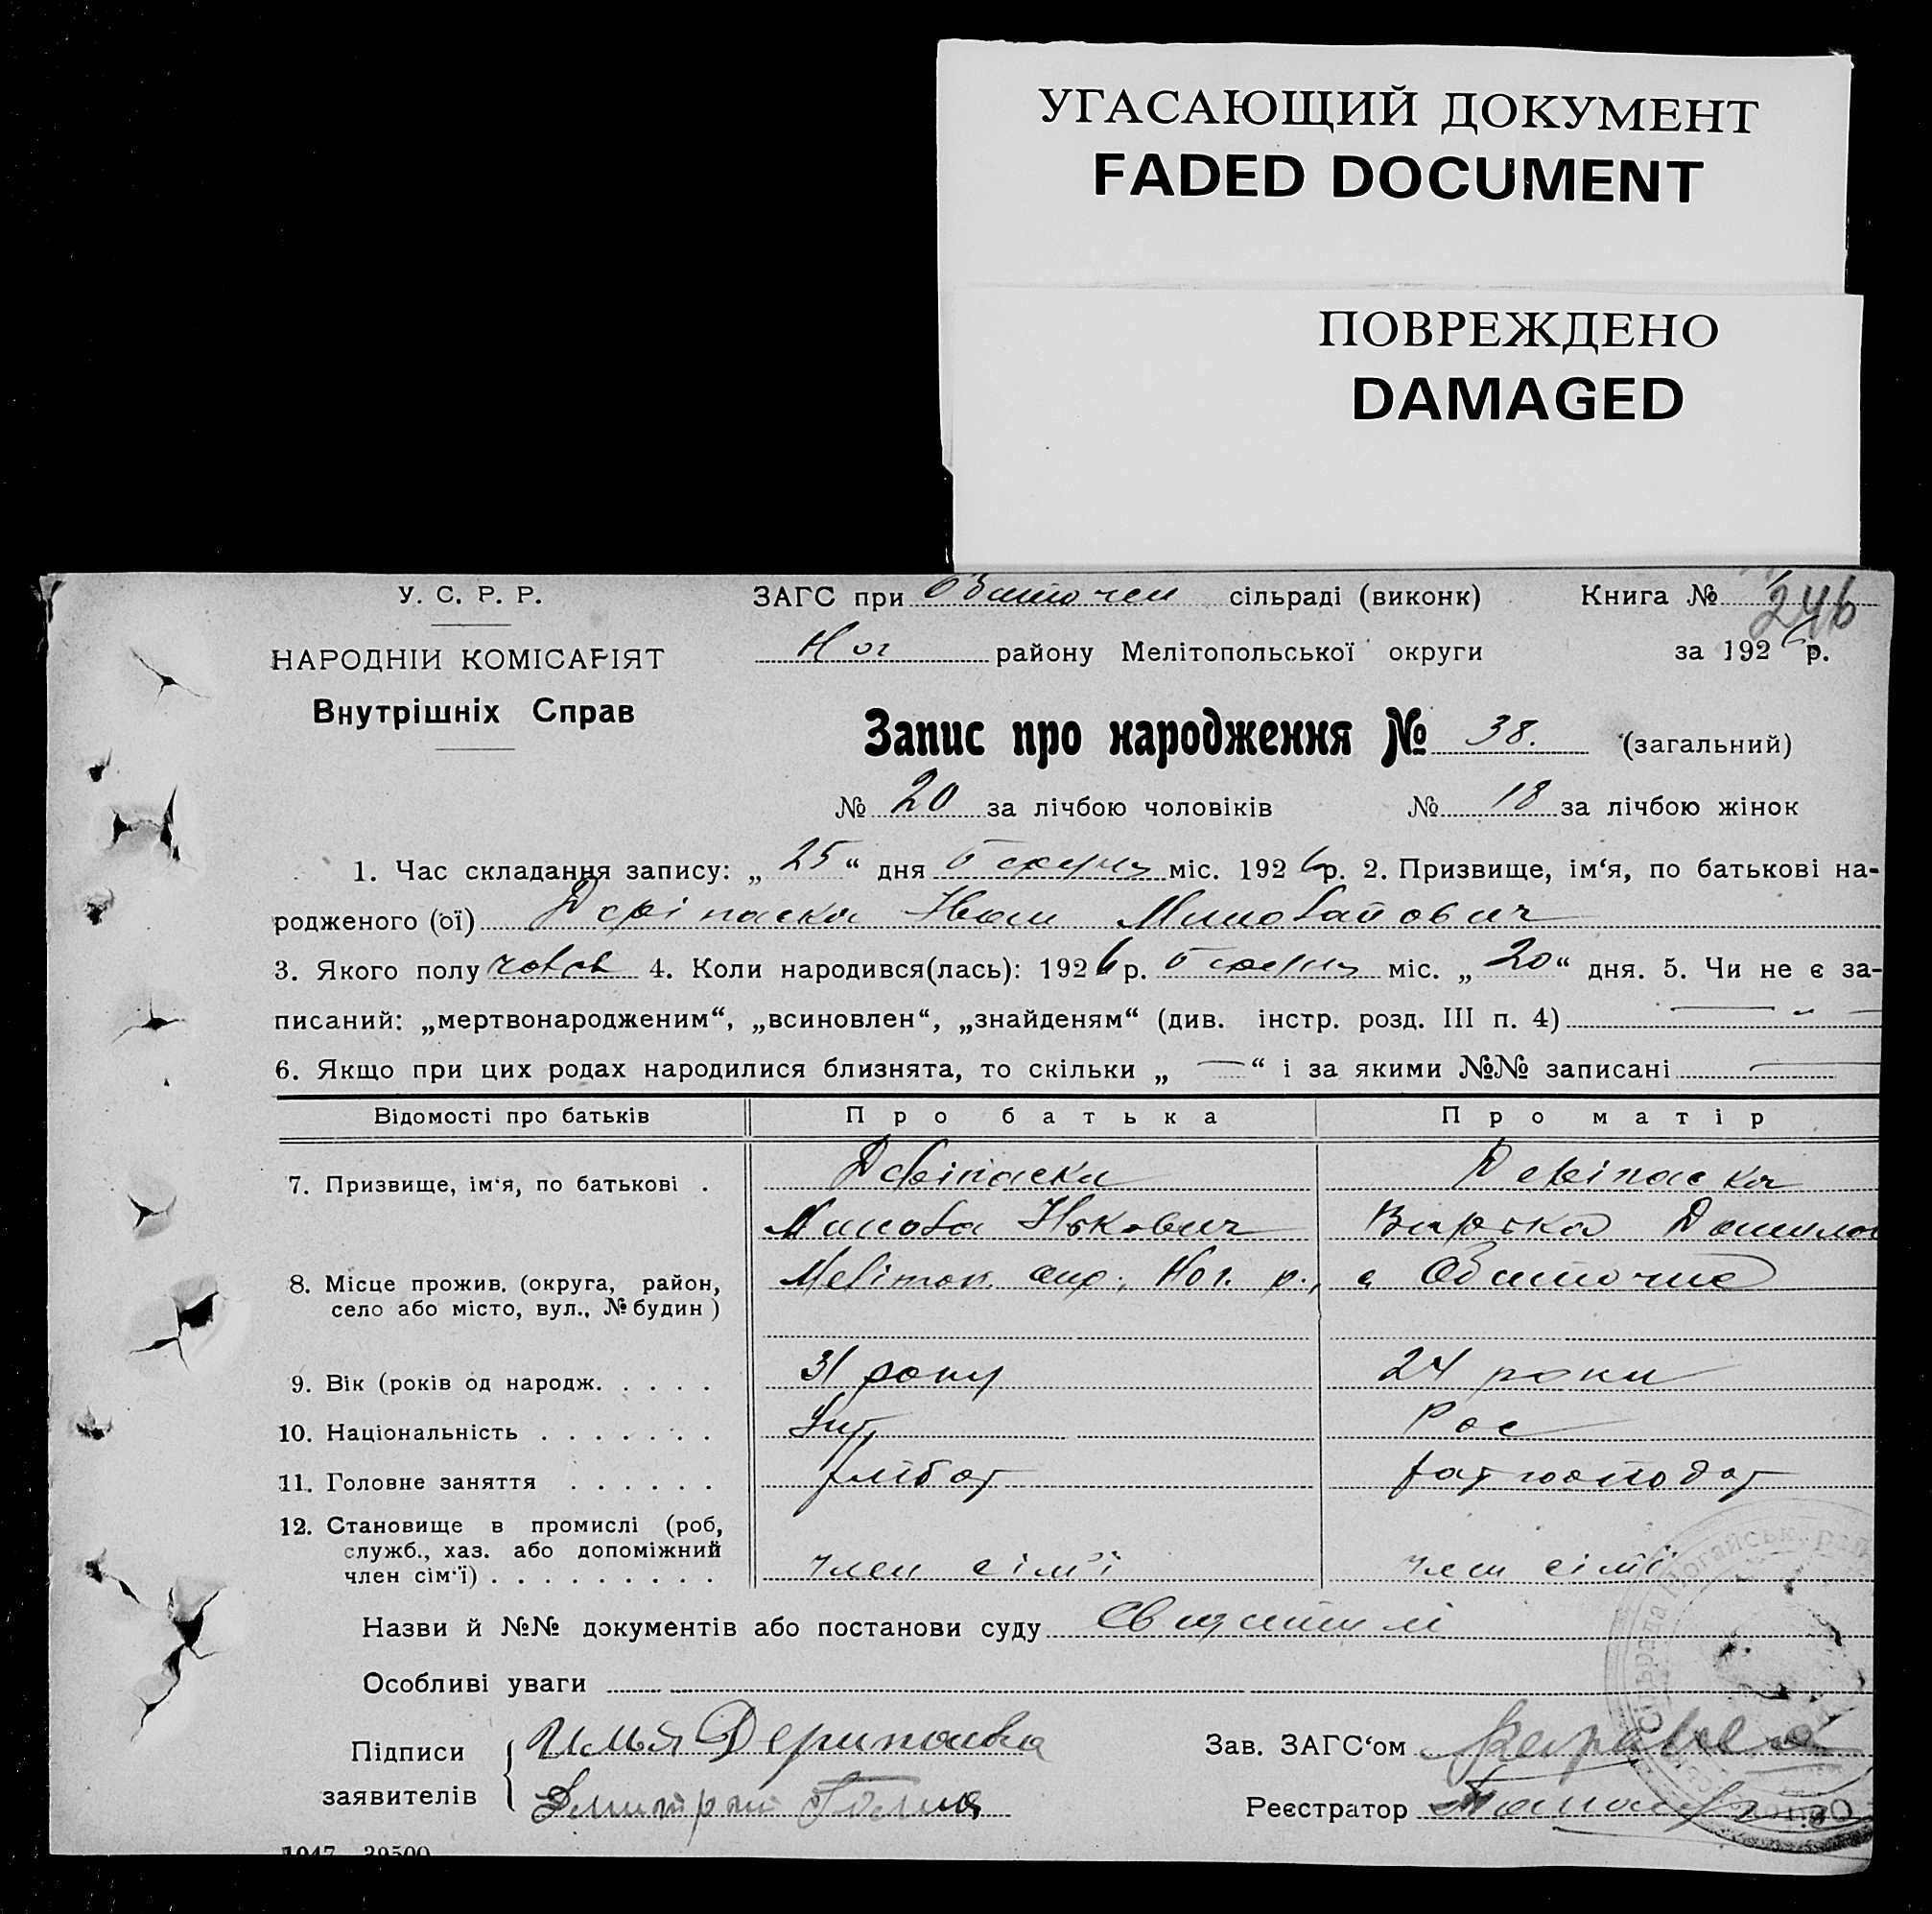 УГАСАЮЩИЙ ДОКУМЕНТ
FADED DOCUMENT
ПОВРЕЖДЕНО
DAMAGED
У. С. Р. Р. ЗАГС при сільраді (виконк) Книга № 246
НАРОДНІИ КОМІСАРІЯТ Ног району Мелітопольської округи за 1926 р.
Внутрішніх Справ
Запис про народження № 38. (загальний)
№ 20 за лічбою чоловіків № 18 за лічбою жінок
1. Час складання запису: „ 25 “ дня міс. 1926 р. 2. Призвище, ім‘я, по батькові на-
родженого (ої) Деріпаска Иван
3. Якого полу 4. Коли народився(лась): 1926 р. міс. „ 20 “ дня. 5. Чи не є за-
писаний: „мертвонародженим“, „всиновлен“, „знайденям“ (див. інстр. розд. III п. 4) —
6. Якщо при цих родах народилися близнята, то скільки „ — “ і за якими №№ записані —
Відомості про батьків Про батька Про матір
7. Призвище, ім‘я, по батькові . Деріпаска Деріпаска
8. Місце прожив. (округа, район, Мелітоп. окр., Ног. р., с Обиточна
село або місто, вул., № будин )
9. Вік (років од народж. . . . . 31 року 24 роки
10. Національність . . . . . . . Укр Рос
11. Головне заняття . . . . . . хлібор
12. Становище в промислі (роб,
служб., хаз. або допоміжний
член сім‘ї) . . . . . . . . . член сім'ї член сім'ї
Назви й №№ документів або постанови суду
Особливі уваги
Підписи Илья Дерипаска Зав. ЗАГС‘ом
заявителів Дмитрий Реєстратор
1047 39500